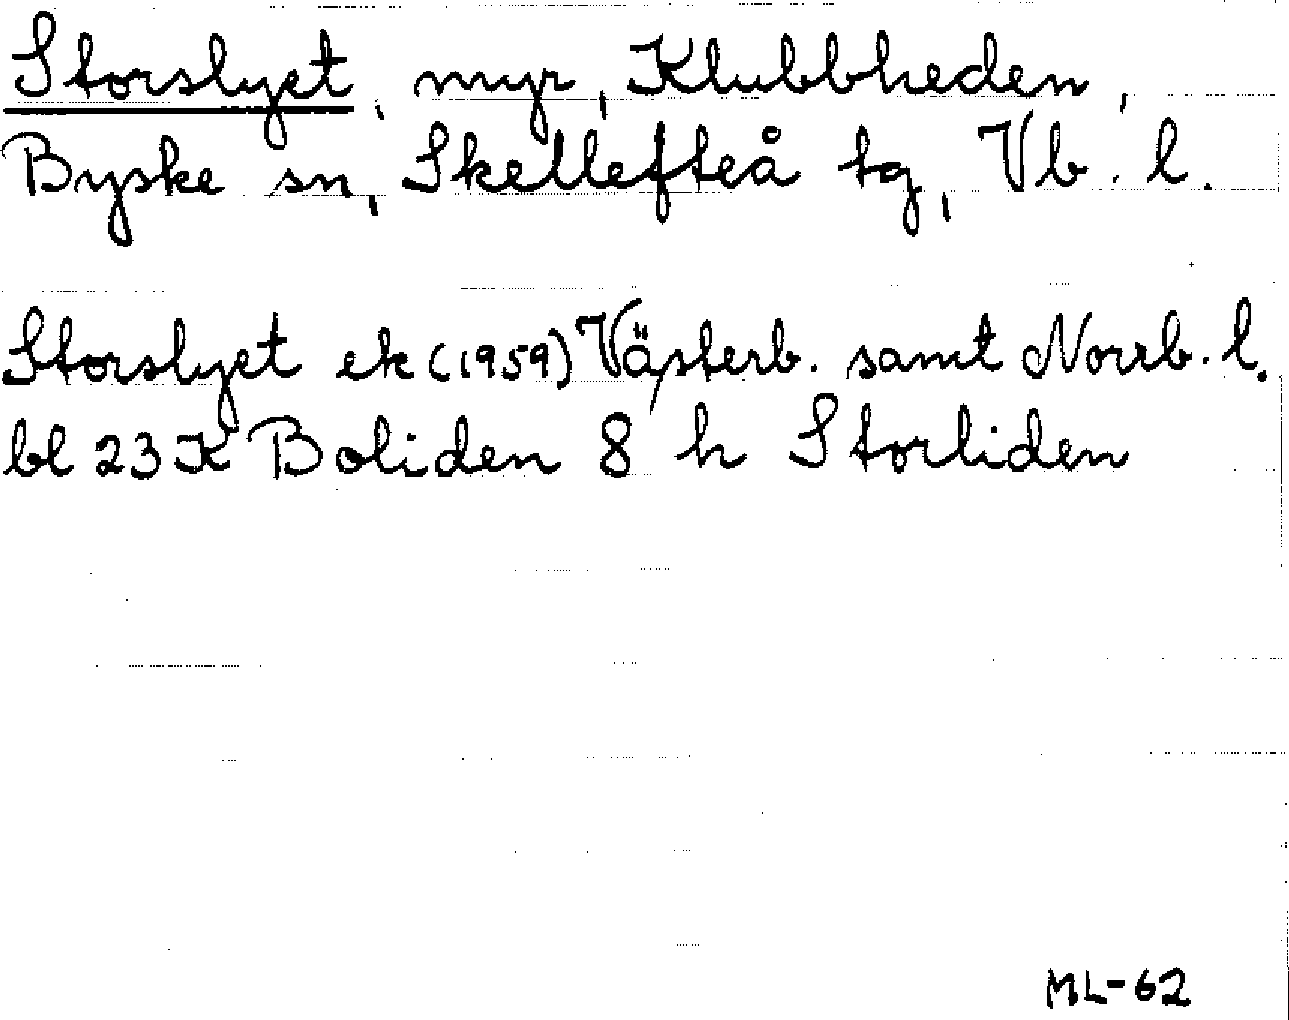 Storslyet, myr, Klubbheden,
Byske sn, Skellefteå tg, Vb. l.
Storslyet ek (1959) Västerb. samt Norrb. l.
bl 23 K Boliden 8 h Storliden
ML-62